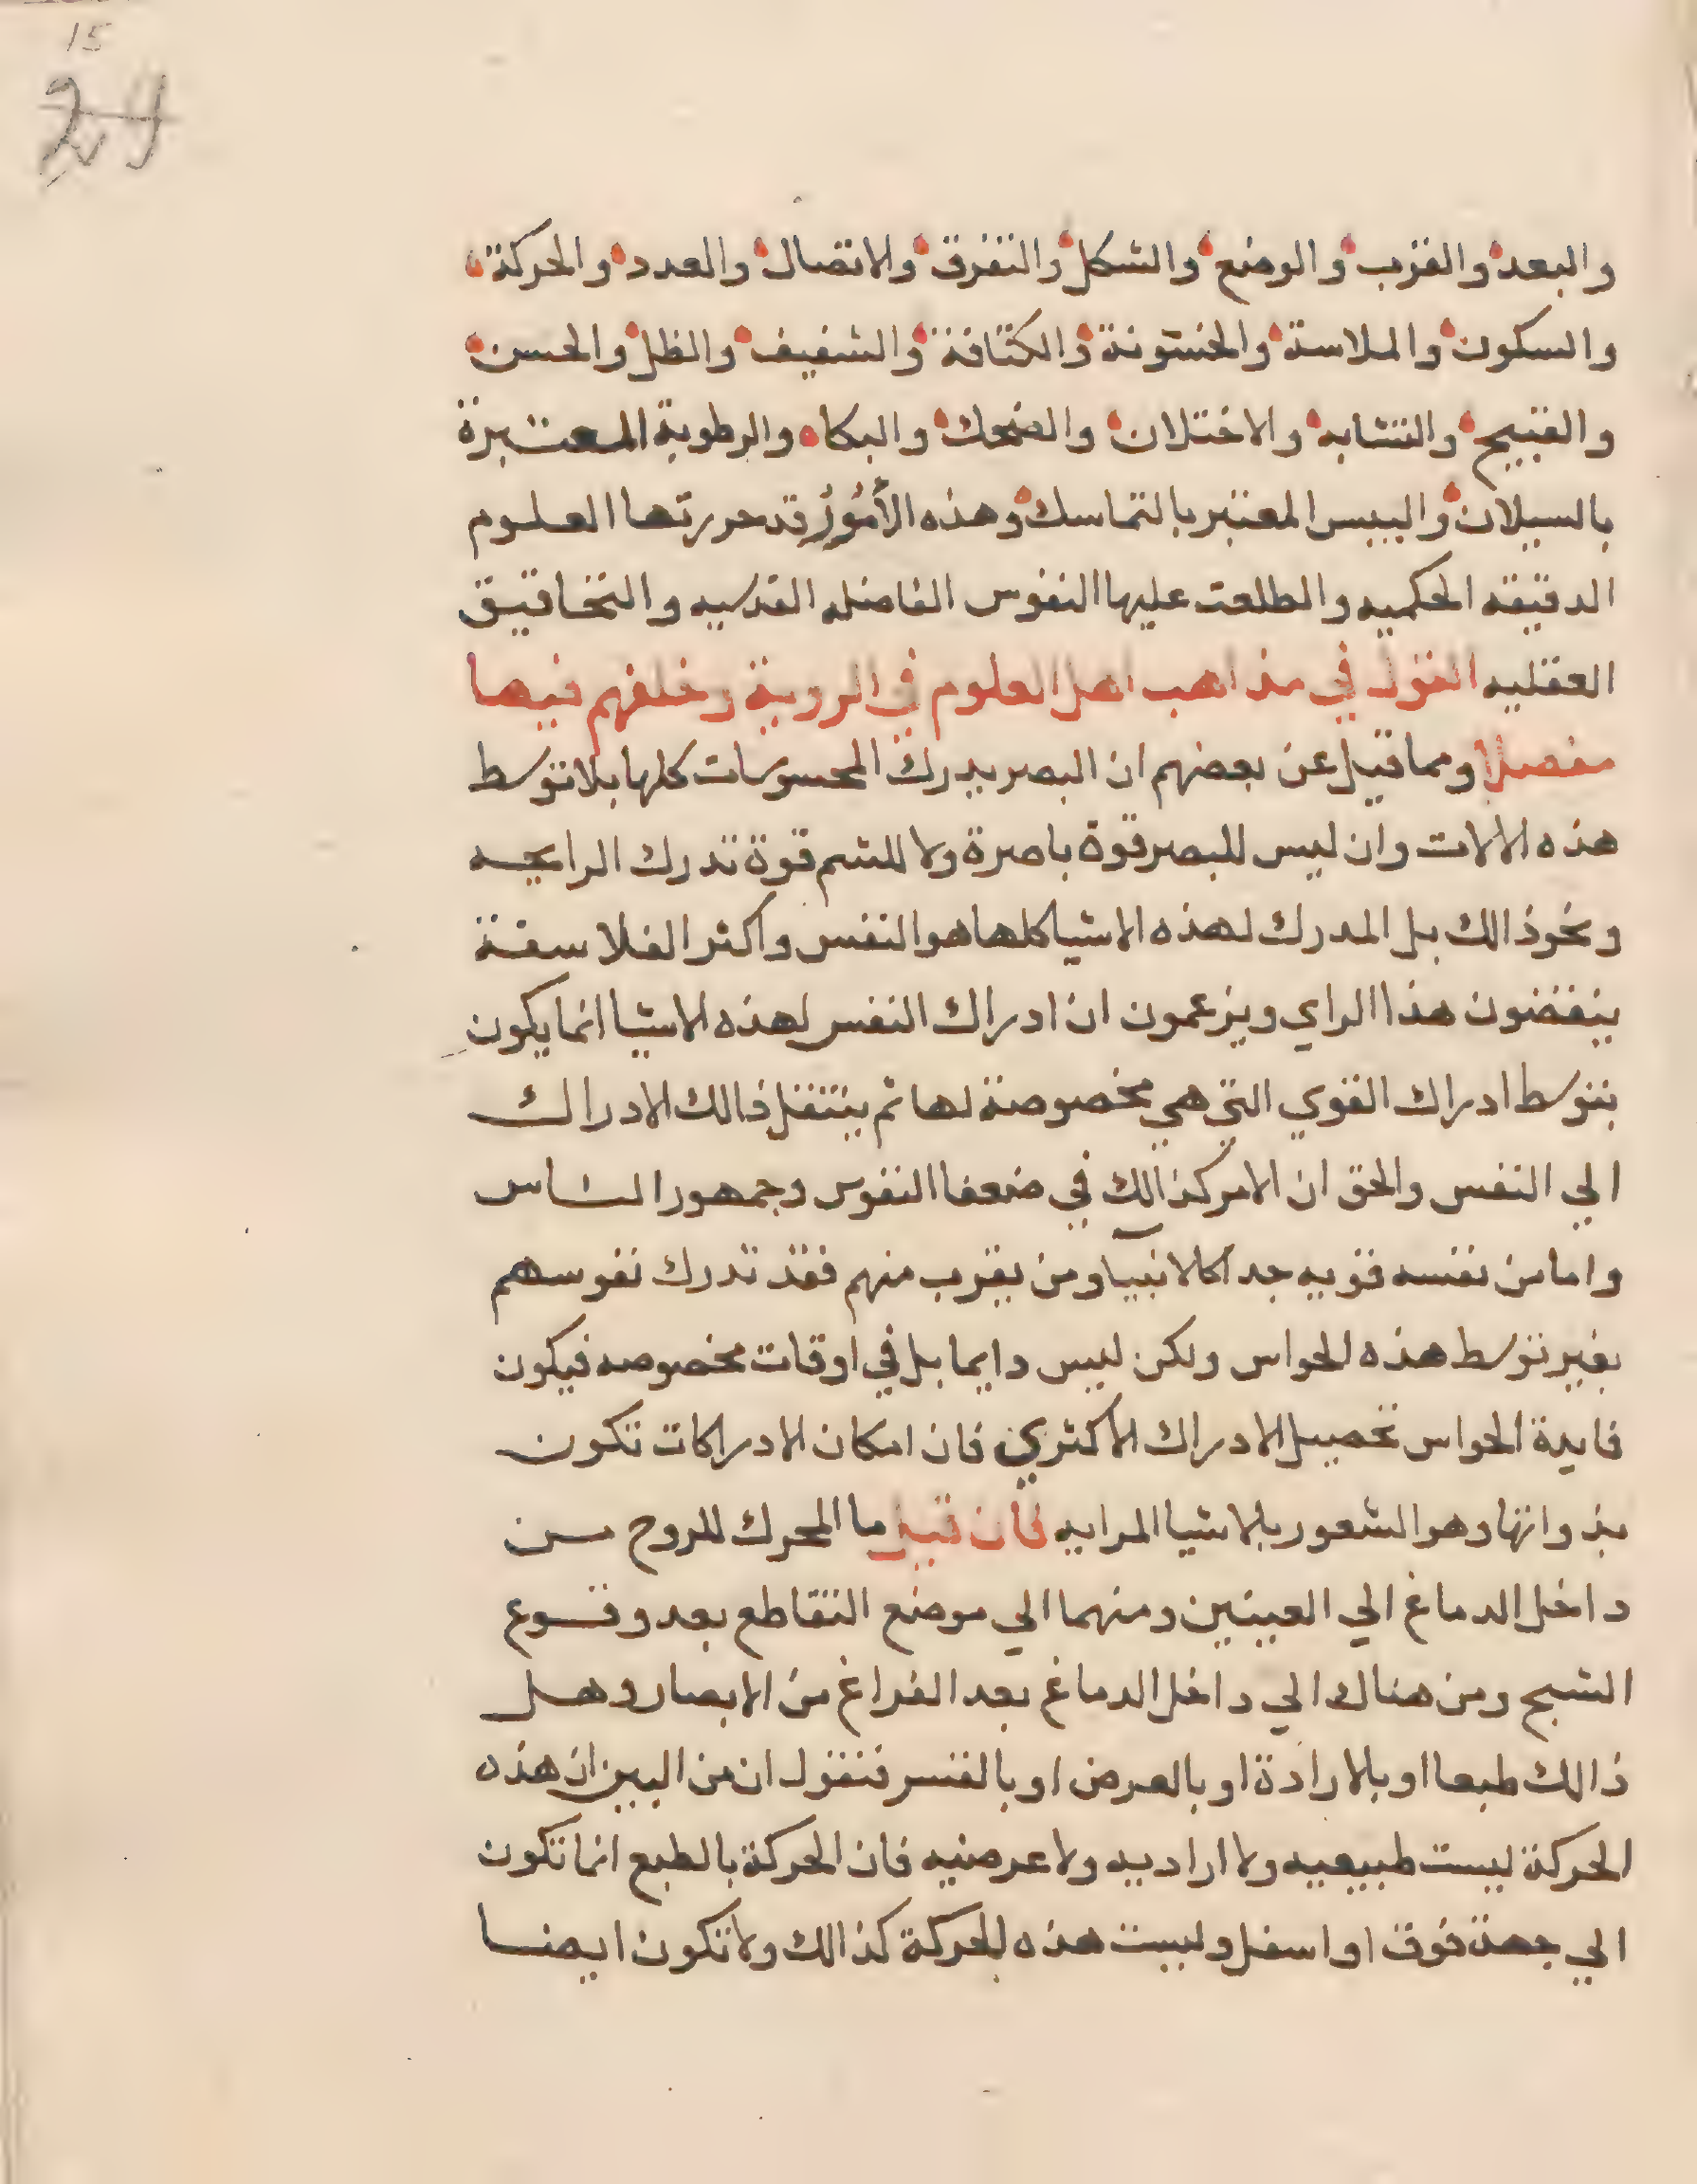 15
24
والبعد والقرب والوضع والشكل والتفرق والاتصال والعدد والحركة
والسكون والملاسة والخشونة والكثافة والشفيف والظل والحسن
والقبيح والتشابه والاختلان والضحك والبكاء والرطوبة المعتبرة
بالسيلان واليبس المعتبر بالتماسك وهذه الأمُوُر قد حررتها العلوم
الدقيقه الحكميه والطلعت عليها النفوس الفاضله القدسيه والتحاقيق
العقليه القول في مذاهب اهل العلوم في الروية وخلفهم فيها
مفصلا ومما قيل عن بعضهم ان البصر يدرك المحسوسات كلها بلا توسط
هذه الالات وان ليس للبصر قوة باصرة ولا للشم قوة تدرك الرايحه
ونحو ذالك بل المدرك لهذه الاشيا كلها هو النفس واكثر الفلاسفة
ينقضون هذا الراي ويزعمون ان ادراك النفس لهذه الاشيا انما يكون
بتوسط ادراك القوي التي هي مخصوصة لها ثم ينتقل ذالك الادراك
الي النفس والحق ان الامر كذالك في ضعفا النفوس وجمهور الناس
واما من نفسه قويه جدا كالانبيآ ومن يقرب منهم فقد تدرك نفوسهم
بغير توسط هذه الحواس ولكن ليس دايما بل في اوقات مخصوصه فيكون
فايدة الحواس تحصيل الادراك الاكثري فان امكان الادراكات تكون
بذواتها وهو الشعور بالاشيا المرايه فان قيل ما المحرك للروح من
داخل الدماغ الي العينين ومنهما الي موضع التقاطع بعد وقوع
الشبح ومن هناك الي داخل الدماغ بعد الفراغ من الابصار وهل
ذالك طبعا او بالارادة او بالعرض او بالقسر فنقول ان من البين ان هذه
الحركة ليست طبيعيه ولا اراديه ولا عرضيه فان الحركة بالطبع انما تكون
الي جهة فوق او اسفل وليست هذه الحركة كذالك ولا تكون ايضا